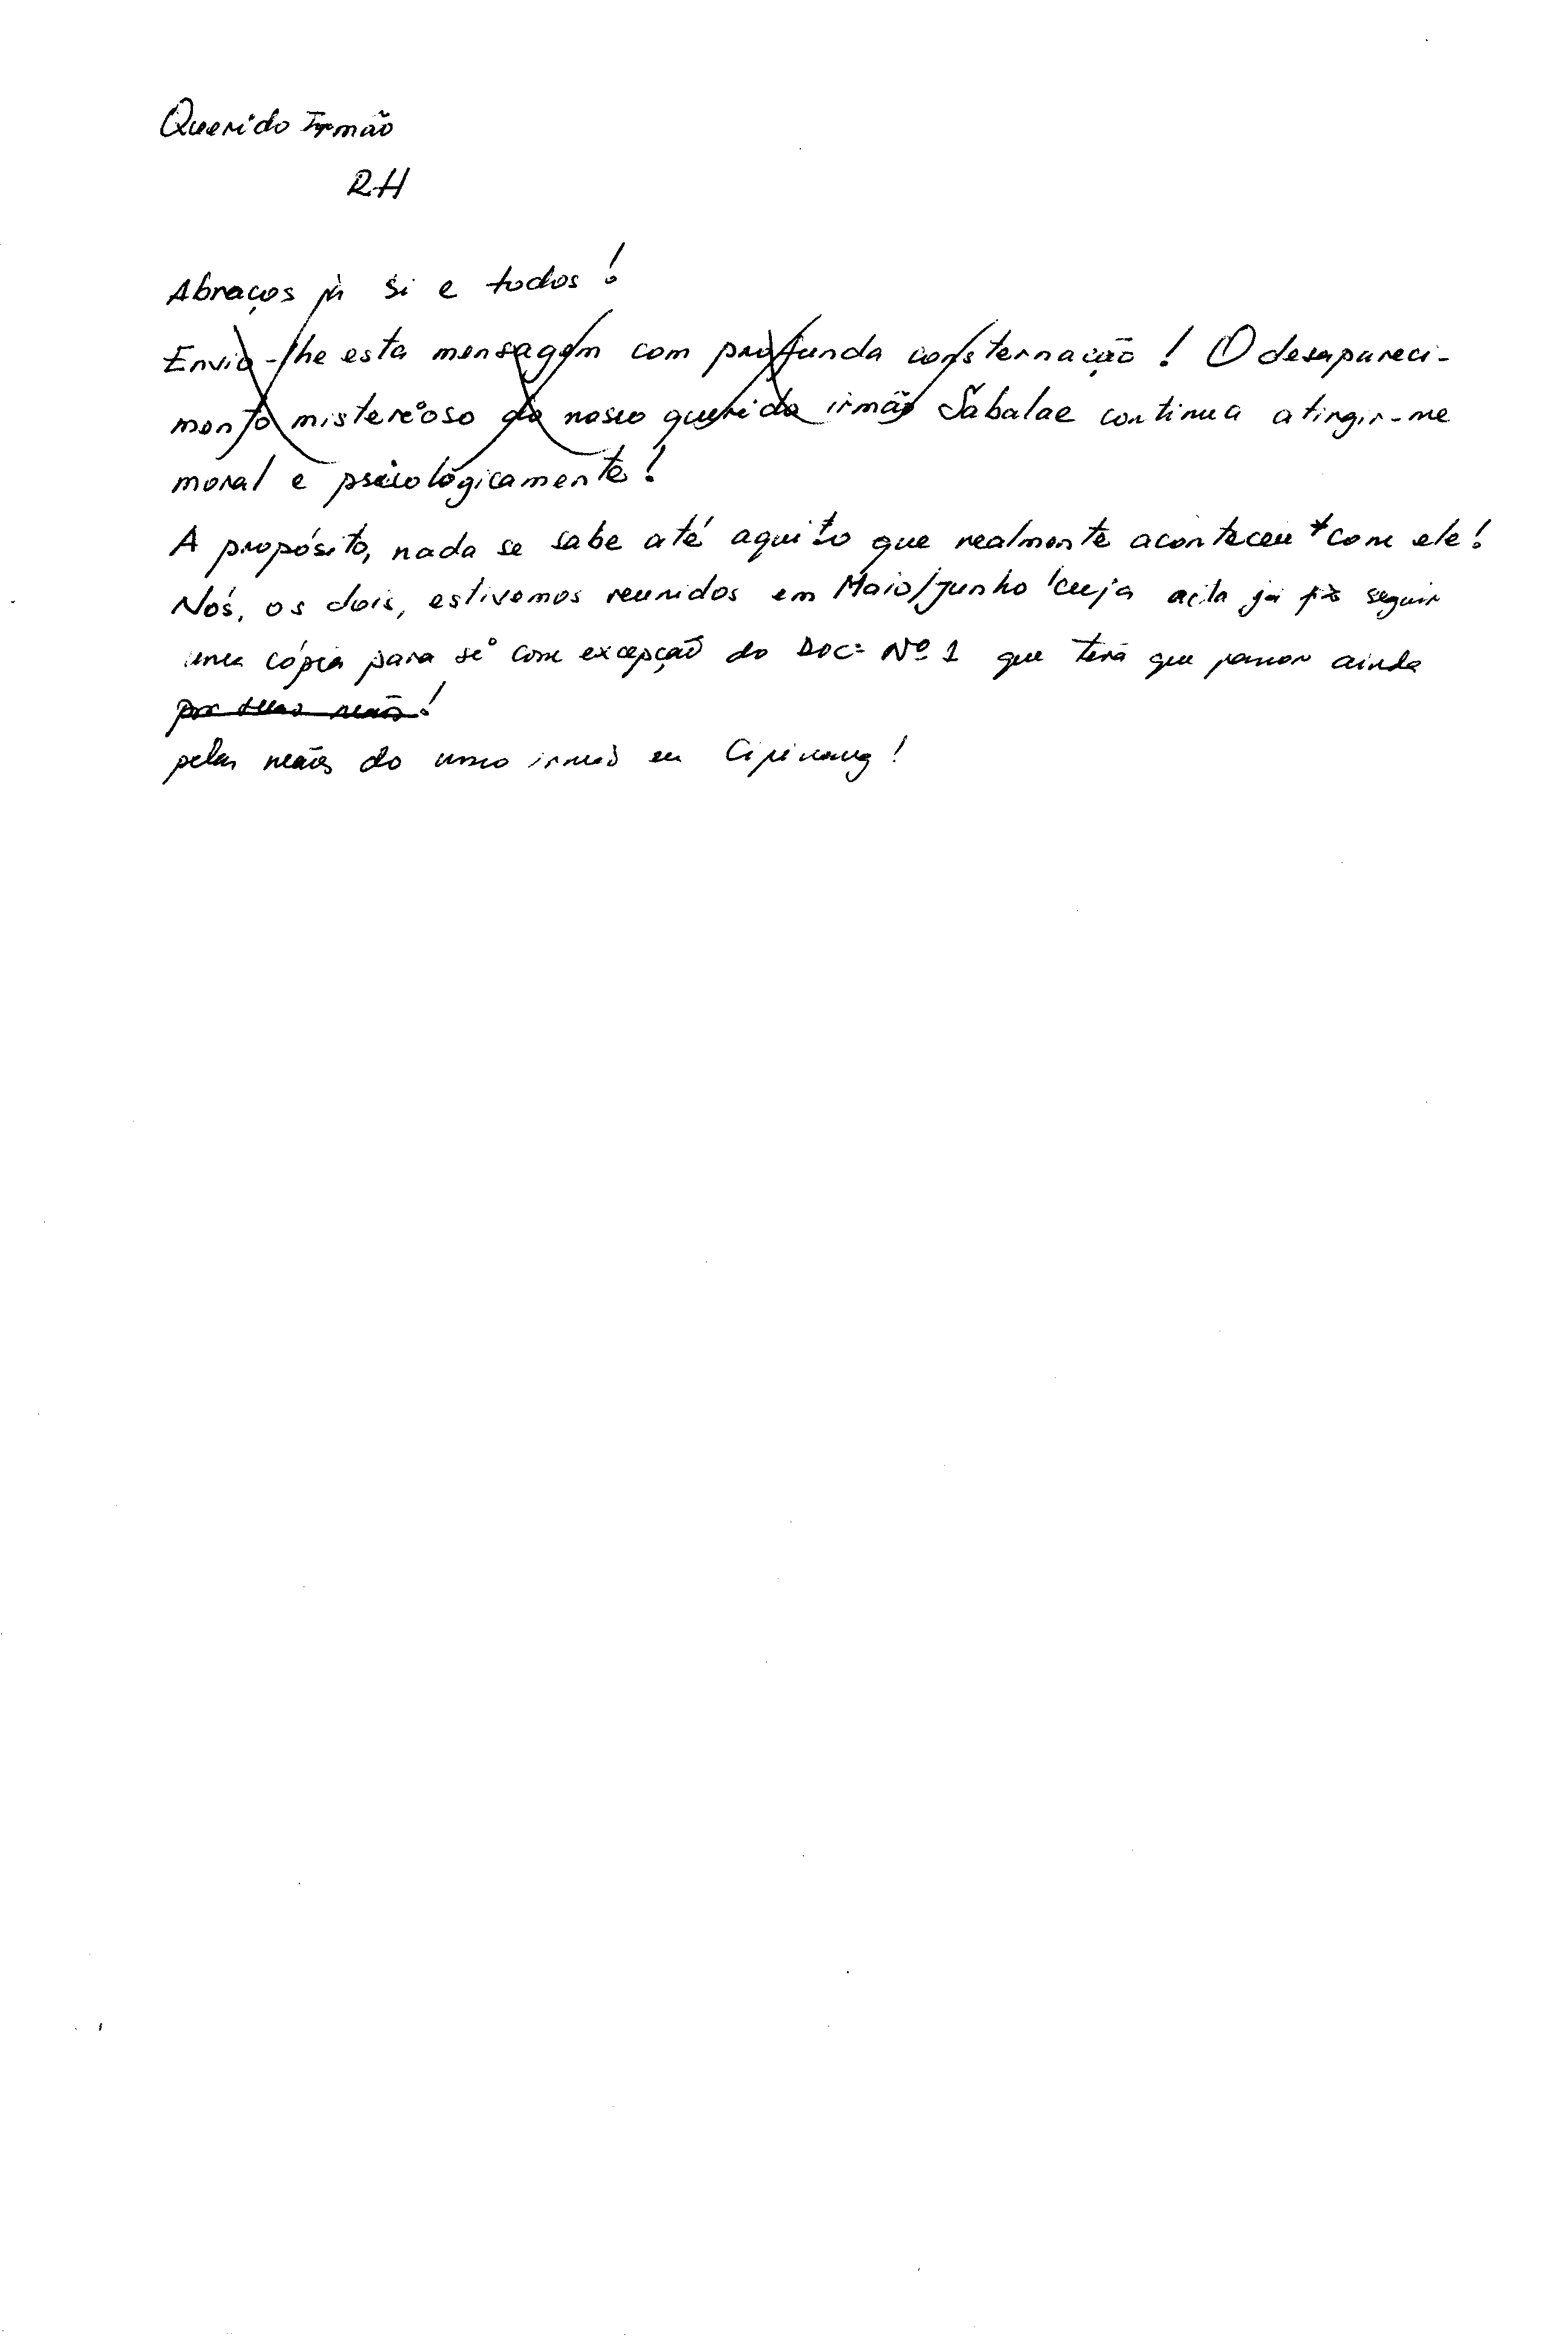 Querido Irmão
RH
Abraços p/ si e todos!
Envio-lhe esta mensagem com profunda consternação! O desapareci-
mento misterioso do nosso querido irmão Sabalae continua atingir-me
moral e psicológicamente!
A propósito, nada se sabe até aqui to que realmente aconteceu com ele!
Nós, os dois, estivemos reunidos em Maio/Junho cuja acta já fiz seguir
uma cópia para si com excepção do Doc: Nº 1 que terá que passar ainda
por suas mãos!
pelas mãos do nosso irmão em Cipinang!